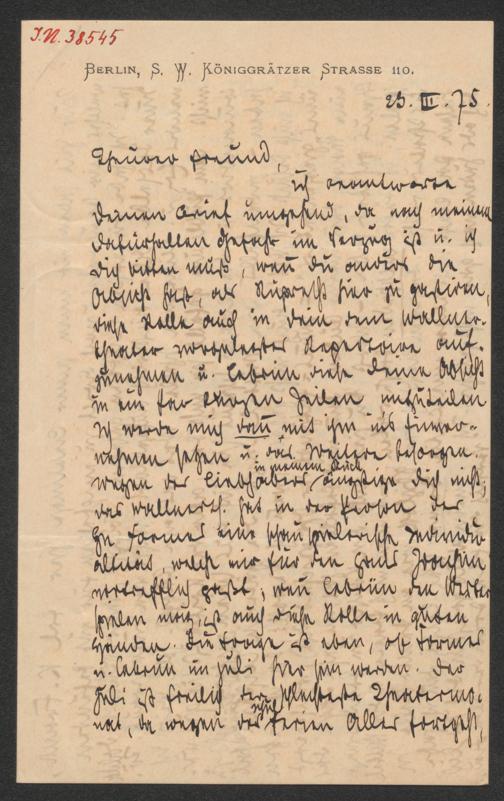 J.N. 38545
BERLIN, S. W. KÖNIGGRÄTZER STRASSE 110.
23. III. 75.
Theurer Freund,
ich beantworte
Deinen Brief umgehend, da nach meinem
Dafürhalten Gefahr im Verzug ist u. ich
Dich bitten muß, wenn Du anders die
Absicht hast, als Ruprecht hier zu gastiren,
diese Rolle auch in dein dem Wallner-
theater vorgelegtes Repertoire auf-
zunehmen u. Lebrün diese Deine Absicht
in ein par kurzen Zeilen mitzuteilen
Ich werde mich dann mit ihm ins Einver-
nehmen setzen u. das Weitere besorgen.
Wegen des Liebhabers in meinem Stück ängstige Dich nicht,
das Wallnerth. hat in der Person des
Hn Formes eine schauspielerische Individu-
alität, welche mir für den Hans Joachim
vortrefflich paßt; wenn Lebrün den
spielen mag, ist auch diese Rolle in guten
Händen. Die Frage ist eben, ob Formes
u. Lebrün im Juli hier sein werden. Der
Juli ist freilich der schlechteste Theatermo-
nat, da wegen der Schulferien Alles fortgeht,